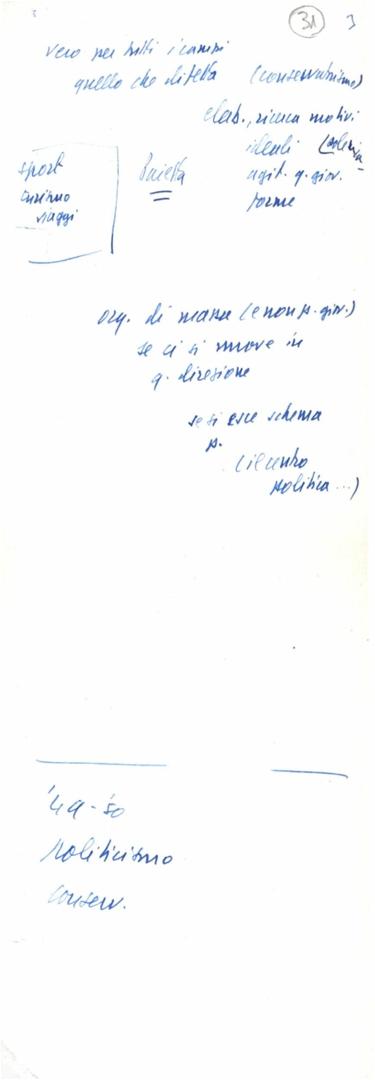 31 3
vero per tutti i campi
quello che difetta (conservatorismo)
elab., ricerca motivi
ideali
agit. q. giov.
forme
sport
turismo
viaggi
Paietta
org. di massa (e non p. giov.)
se ci si muove in
q. direzione
se si esce schema
p.
(il centro
politica ...)
'49-'50
Politicismo
Conserv.